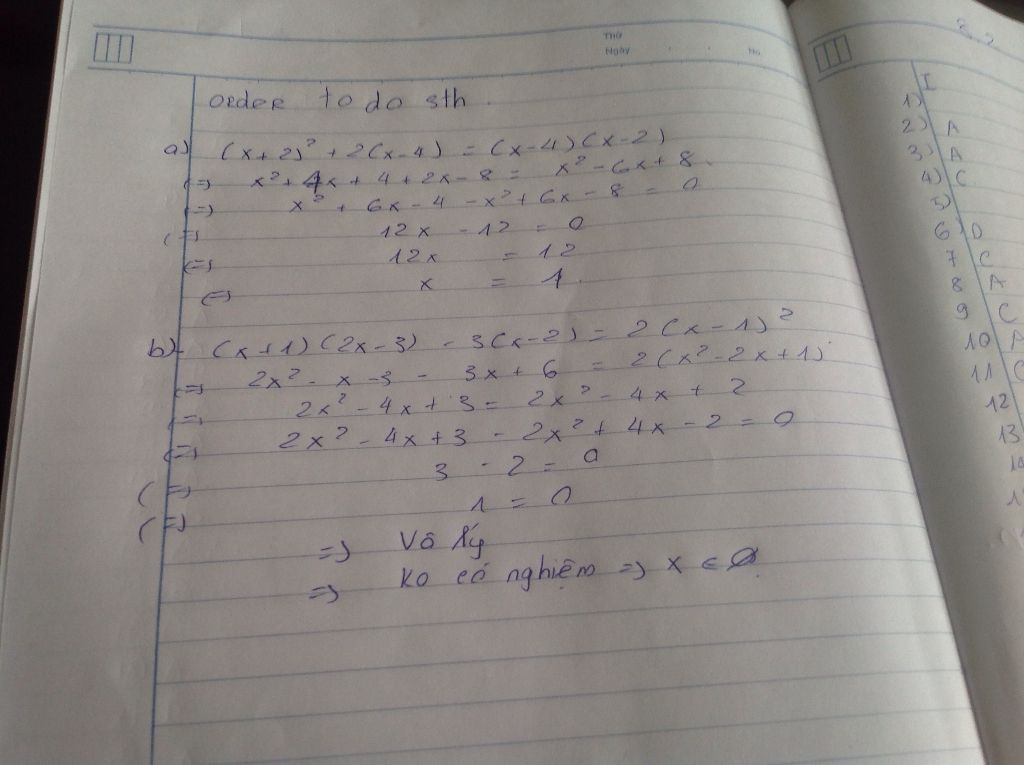 Thứ
Ngày . . No.
order to do sth.
a) (x+2)² + 2(x-4) = (x-4)(x-2)
(=) x² + 4x + 4 + 2x - 8 = x² - 6x + 8.
(=) x² + 6x - 4 - x² + 6x - 8 = 0
(=) 12x - 12 = 0
(=) 12x = 12
(=) x = 1.
b) (x+1)(2x-3) - 3(x-2) = 2(x-1)²
(=) 2x² - x - 3 - 3x + 6 = 2(x² - 2x + 1)
(=) 2x² - 4x + 3 = 2x² - 4x + 2
(=) 2x² - 4x + 3 - 2x² + 4x - 2 = 0
(=) 3 - 2 = 0
(=) 1 = 0
=) Vô lý
=) Ko có nghiệm =) x ∈ ∅.
I
1)
2) A
3) A
4) C
5)
6) D
7 C
8 A
9 C
10 A
11 C
12
13
14